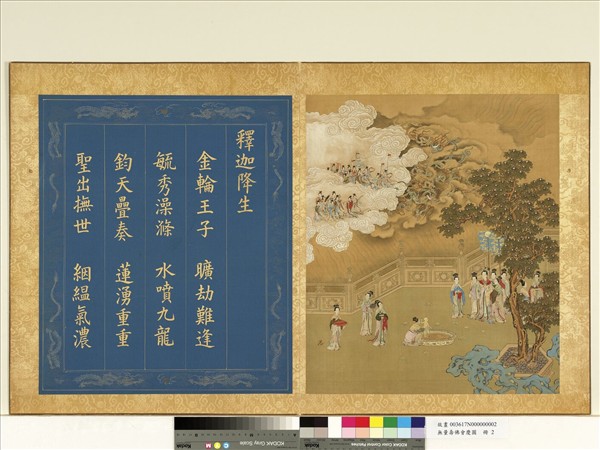 釋迦降生
金輪王子 曠劫難逢
毓秀澡滌 水噴九龍
鈞天疊奏 蓮湧重重
聖出撫世 絪縕氣濃
故畫 003617N000000002
無量壽佛會慶圖 冊 2
KODAK Gray Scale
KODAK Color Control Patches